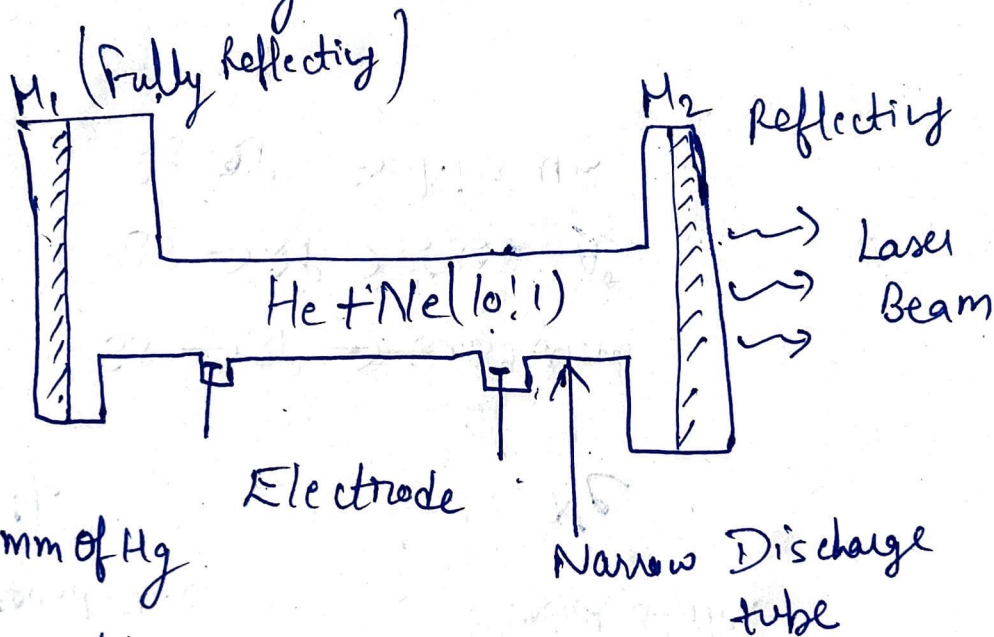 M1 (Fully Reflecting)
M2 Reflecting
Laser
Beam
He + Ne (10:1)
Electrode
mm of Hg
Narrow Discharge
tube